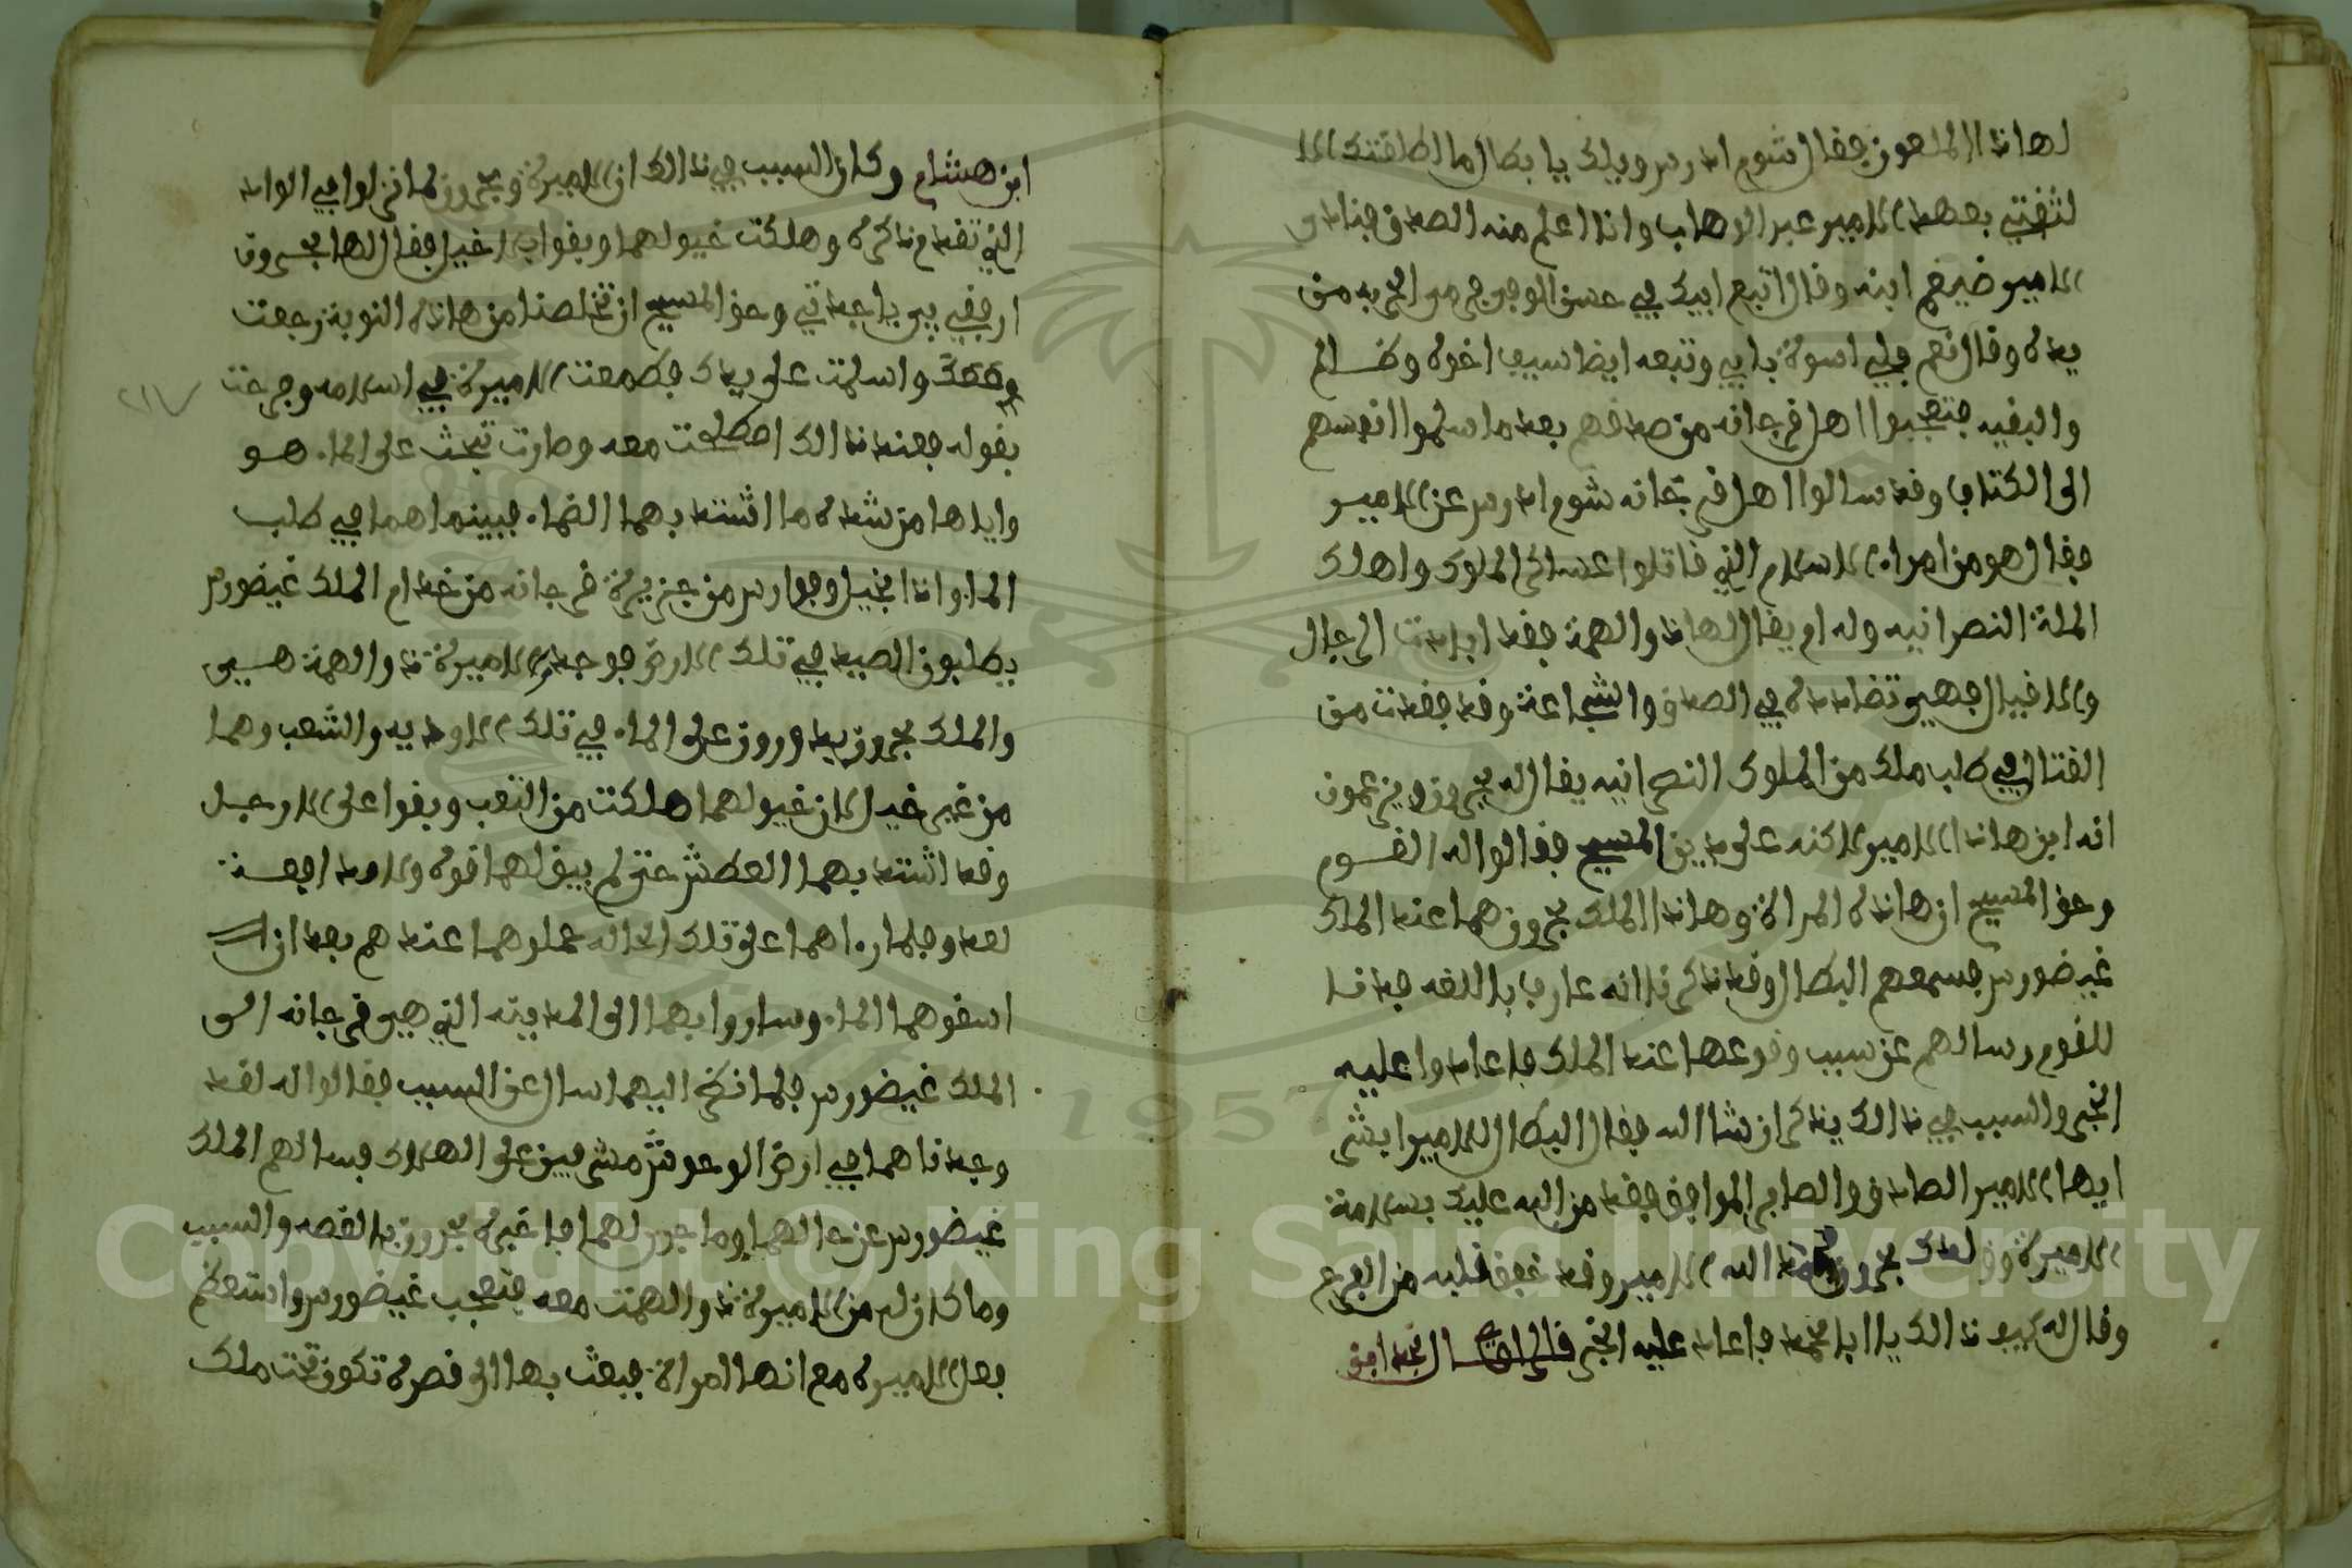 لهاذا الملعون فقال شوم ادرس ويلك يا بطال ما اطلقتك الا
لثقتي بعهد الامير عبد الوهاب وانا اعلم منه الصدق فنادى
الامير ضيغم ابنه وقال اتبع ابيك في حسن الوجوج من الحربه من
يده وقال نعم فلي اسوة بابي وتبعه ايضا سيف اخوه وظالم
والبقيه فتعجبوا اهل فرجانه من صدقهم بعد ما سلموا انفسهم
الى الكتاف وقد سالوا اهل فرجانه شوم ادرس عن الامير
فقال هو من امراء الاسلام الذي قاتلوا عساكر الملوك واهلك
الملة النصرانيه وله ام يقال لها ذو الهمة فقد ابادت الرجال
والاقيال فهي تضادده في الصدق والشجاعة وقد فقدت من
القتال في طلب ملك من الملوك النصرانيه يقال له بحرون ويزعمون
انه ابن هاذا الامير لاكنه على دين المسيح فقالوا له القوم
وحق المسيح ان هاذه المراة وهاذا الملك بحرون هما عند الملك
غيضورس فسمعهم البطال وقد ذكرنا انه عارف باللغه فدنا
للقوم وسالهم عن سبب وقوعها عند الملك فاعادوا عليه
الخبر والسبب في ذالك يذكر ان شا الله فقال البطال للامير ابشر
ايها الامير الصادق والصابر الموافق فقد من الله عليك بسلامة
الاميرة وولدك بحرون الله الامير وقد خفق قلبه من الفرح
وقال له كيف ذالك يا ابا محمد فاعاد عليه الخبر قال الراوي نجد ابن
ابن هشام وكان السبب في ذالك ان الاميرة وبحرون لما نزلوا في الواد
الذي تقدم ذكره وهلكت خيولهما وبقوا بلا خيل فقال لها بحرون
ارفقي بي يا جدتي وحق المسيح ان تخلصنا من هاذه النوبة رجعت
واسلمت على يدك فطمعت الاميرة في اسلامه وفرحت
بقوله فعند ذالك اصطلحت معه وصارت تبحث على الماء هو
واياها من شدة ما اشتد بهما الضماء فبينما هما في طلب
الماء واذا بخيل وفوارس من جزيرة فرجانه من خدام الملك غيضورس
يطلبون الصيد في تلك الارض فوجدوا الاميرة ذو الهمة هي
والملك بحرون يدورون على الماء في تلك الاوديه والشعب وهما
من غير خيل لان خيولهما هلكت من التعب وبقوا على الارجل
وقد اشتد بهما العطش حتى لم يبق لهما قوه ولا مدافعة
لعدو فلما راهما على تلك الحاله حملوهما عندهم بعد ان
اسقوهما الماء وساروا بهما الى المدينه الذي هي فرجانه الى
الملك غيضورس فلما نظر اليهما سال عن السبب فقالوا له لقد
وجدناهما في ارض الوحوش مشرفين على الهلاك فسالهم الملك
غيضورس عن حالهما وما جرى لهما فاخبره بحرون بالقصه والسبب
وما كان له من الاميرة ذو الهمت معه فتعجب غيضورس واستعظم
فعل الاميره مع انها امراة فبعث بها الى قصره تكون تحت ملك